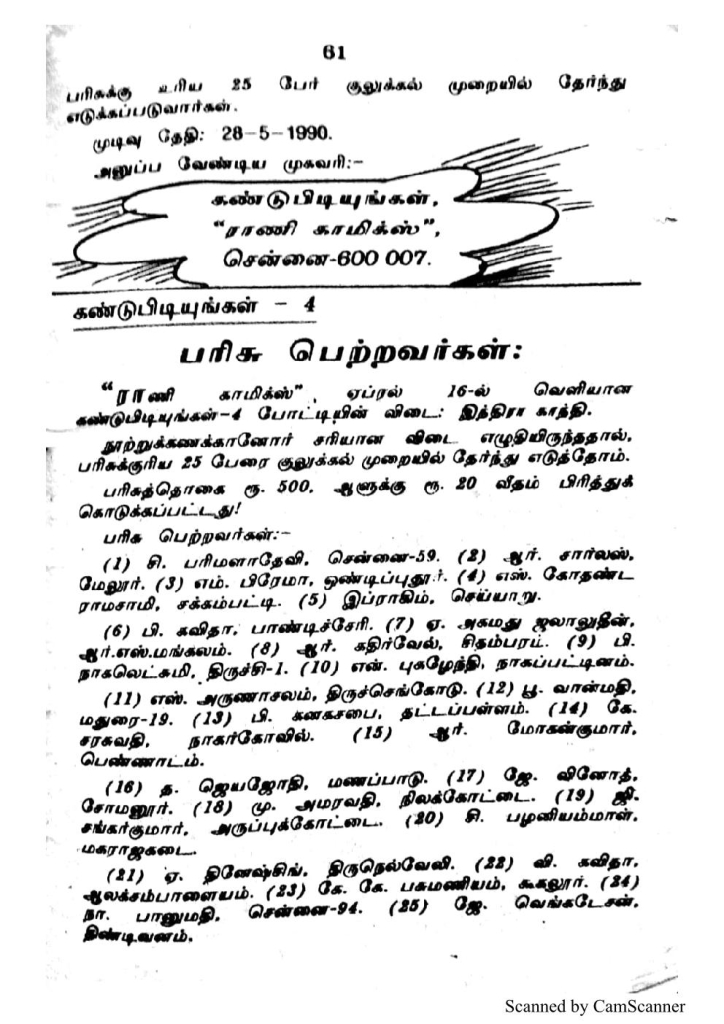 61
பரிசுக்கு உரிய 25 பேர் குலுக்கல் முறையில் தேர்ந்து
எடுக்கப்படுவார்கள்.
முடிவு தேதி: 28-5-1990.
அனுப்ப வேண்டிய முகவரி:-
கண்டுபிடியுங்கள்,
"ராணி காமிக்ஸ்",
சென்னை-600 007.
கண்டுபிடியுங்கள் - 4
பரிசு பெற்றவர்கள்:
"ராணி காமிக்ஸ்" ஏப்ரல் 16-ல் வெளியான
கண்டுபிடியுங்கள்-4 போட்டியின் விடை: இந்திரா காந்தி.
நூற்றுக்கணக்கானோர் சரியான விடை எழுதியிருந்ததால்,
பரிசுக்குரிய 25 பேரை குலுக்கல் முறையில் தேர்ந்து எடுத்தோம்.
பரிசுத்தொகை ரூ. 500. ஆளுக்கு ரூ. 20 வீதம் பிரித்துக்
கொடுக்கப்பட்டது!
பரிசு பெற்றவர்கள்:-
(1) சி. பரிமளாதேவி, சென்னை-59. (2) ஆர். சார்லஸ்,
மேலூர். (3) எம். பிரேமா, ஒண்டிப்புதூர். (4) எஸ். கோதண்ட
ராமசாமி, சக்கம்பட்டி. (5) இப்ராகிம், செய்யாறு.
(6) பி. கவிதா, பாண்டிச்சேரி. (7) ஏ. அகமது ஜலாலுதீன்,
ஆர்.எஸ்.மங்கலம். (8) ஆர். கதிர்வேல், சிதம்பரம். (9) பி.
நாகலெட்சுமி, திருச்சி-1. (10) என். புகழேந்தி, நாகப்பட்டினம்.
(11) எஸ். அருணாசலம், திருச்செங்கோடு. (12) பூ. வான்மதி,
மதுரை-19. (13) பி. கனகசபை, தட்டப்பள்ளம். (14) கே.
சரசுவதி, நாகர்கோவில். (15) ஆர். மோகன்குமார்,
பெண்ணாடம்.
(16) த. ஜெயஜோதி, மணப்பாடு. (17) ஜே. வினோத்,
சோமனூர். (18) மு. அமரவதி, நிலக்கோட்டை. (19) ஜி.
சங்கர்குமார், அருப்புக்கோட்டை. (20) சி. பழனியம்மாள்,
மகராஜகடை.
(21) ஏ. தினேஷ்சிங், திருநெல்வேலி. (22) வி. கவிதா,
ஆலச்சம்பாளையம். (23) கே. கே. பசுமணியம், கூகலூர். (24)
நா. பானுமதி, சென்னை-94. (25) ஜே. வெங்கடேசன்,
திண்டிவனம்.
Scanned by CamScanner